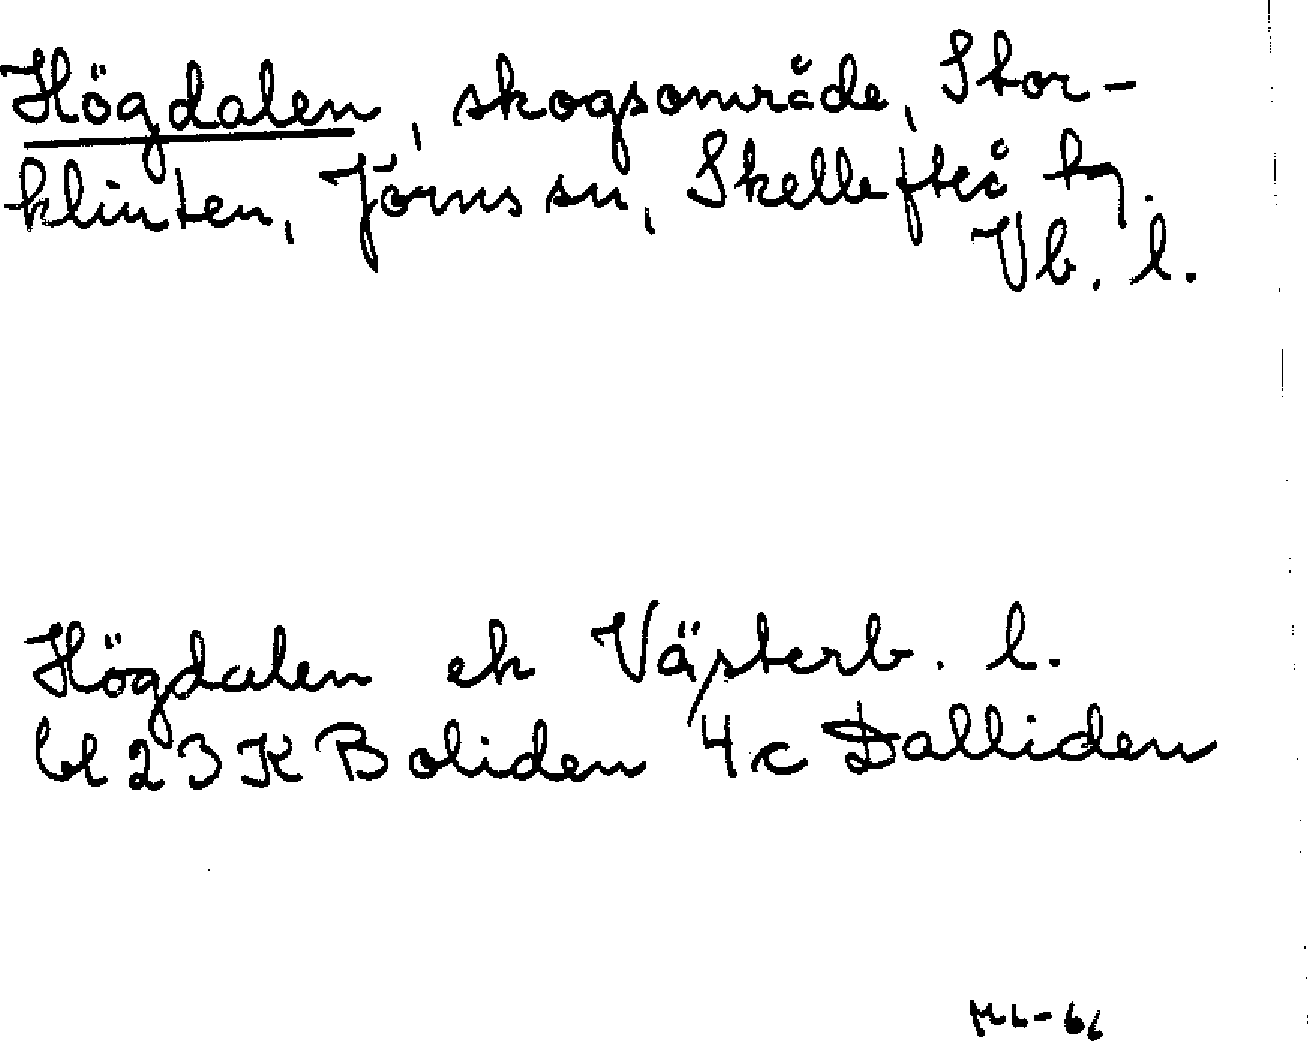 Högdalen, skogsområde, Stor-
klinten, Jörns sn, Skellefteå
Vb. l.
Högdalen ek Västerb. l.
bl 23K Boliden 4c Dalliden